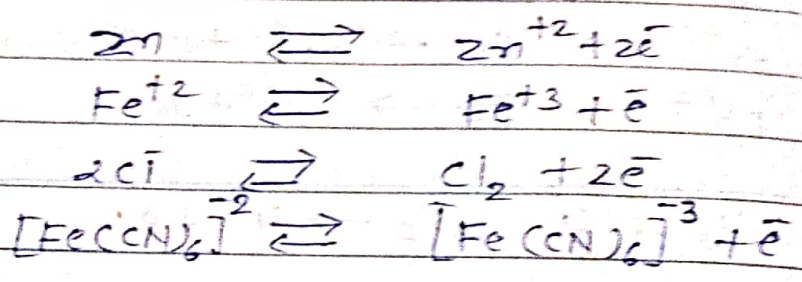 Zn ⇌ Zn⁺² + 2ē
Fe⁺² ⇌ Fe⁺³ + ē
2Cl̄ ⇌ Cl₂ + 2ē
[Fe(CN)₆]⁻² ⇌ [Fe(CN)₆]⁻³ + ē